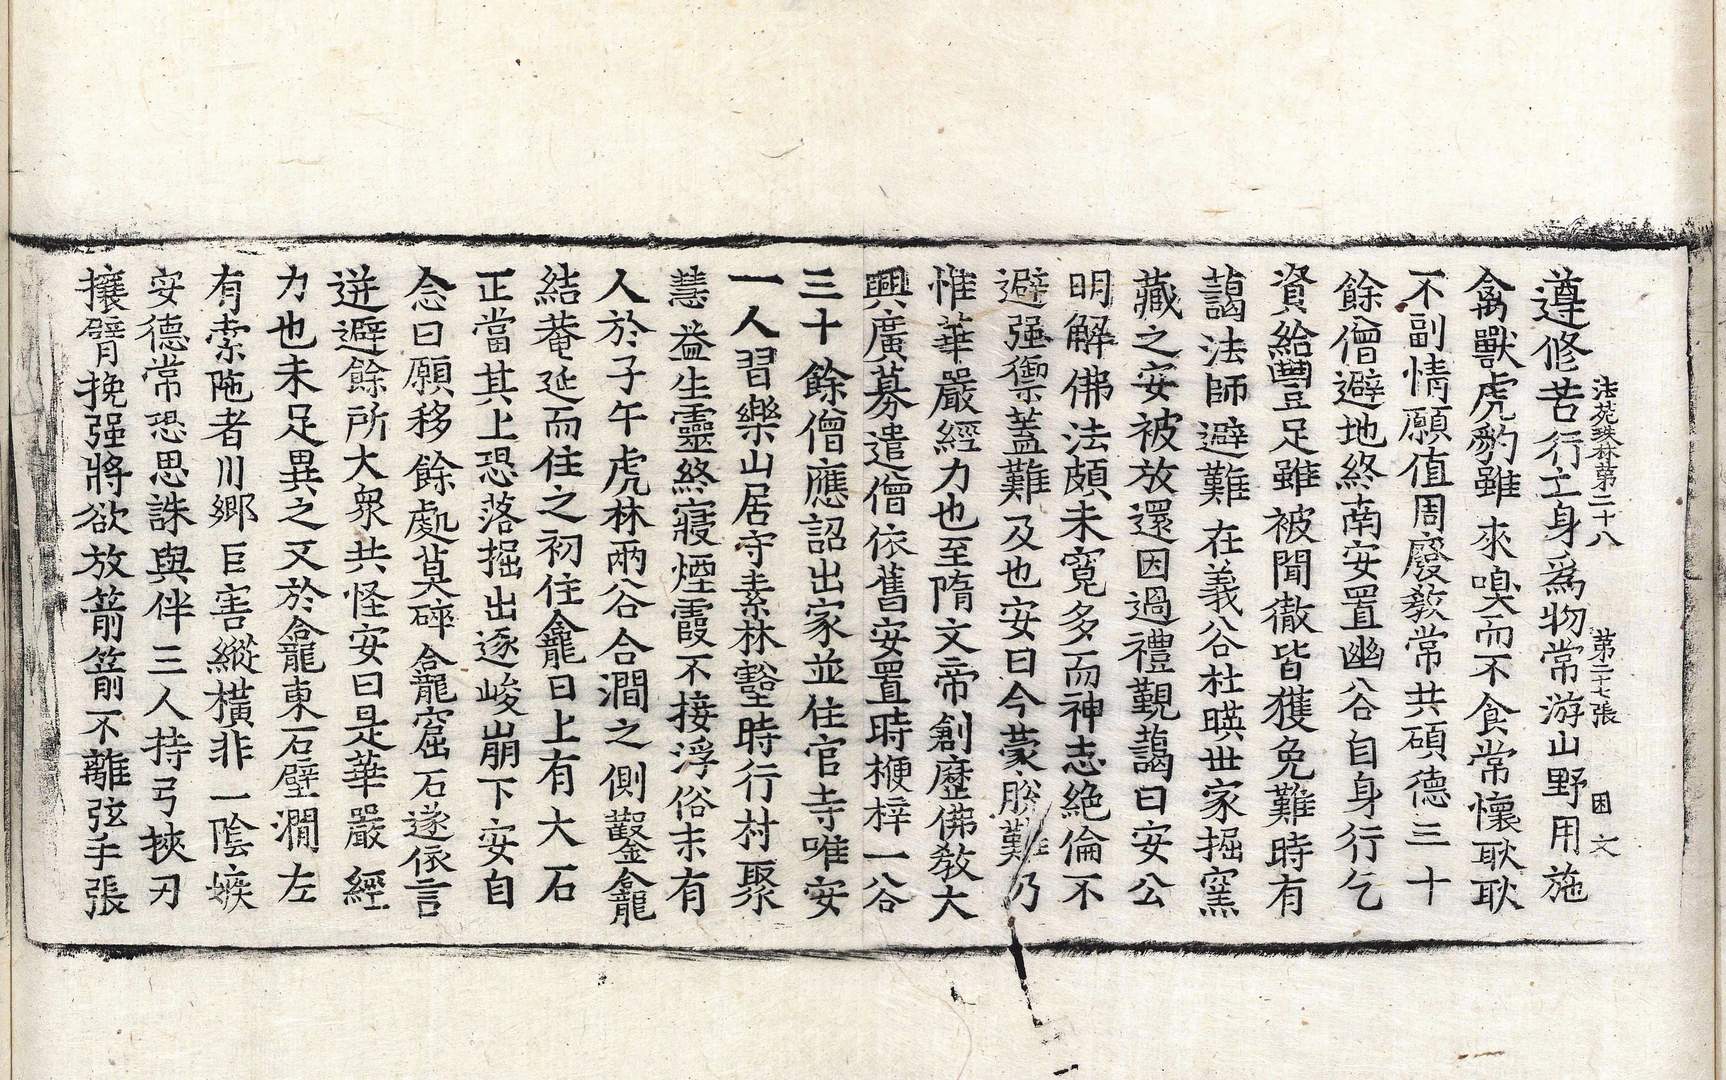 法苑珠林第二十八 第二十七張 困 文
遵修苦行立身爲物常游山野用施
禽獸虎豹雖來嗅而不食常懷耿耿
不副情願值周廢教常共碩德三十
餘僧避地終南安置幽谷自身行乞
資給豐足雖被聞徹皆獲免難時有
藹法師避難在義谷杜暎世家掘窯
藏之安被放還因過禮覲藹曰安公
明解佛法頗未寬多而神志絕倫不
避强禦蓋難及也安曰今蒙脫難乃
惟華嚴經力也至隋文帝創歷佛教大
興廣募遣僧依舊安置時梗梓一谷
三十餘僧應詔出家並住官寺唯安
一人習樂山居守素林壑時行村聚
慧益生靈終寢煙霞不接浮俗末有
人於子午虎林兩谷合澗之側鑿龕
結菴延而住之初住龕曰上有大石
正當其上恐落掘出逐峻崩下安自
念曰願移餘處莫碎龕窟石遂依言
迸避餘所大衆共怪安曰是華嚴經
力也未足異之又於龕東石壁澗左
有索陁者川鄉巨害縱橫非一陰嫉
安德常恐思誅與伴三人持弓挾刃
攘臂挽强將欲放箭箭不離弦手張